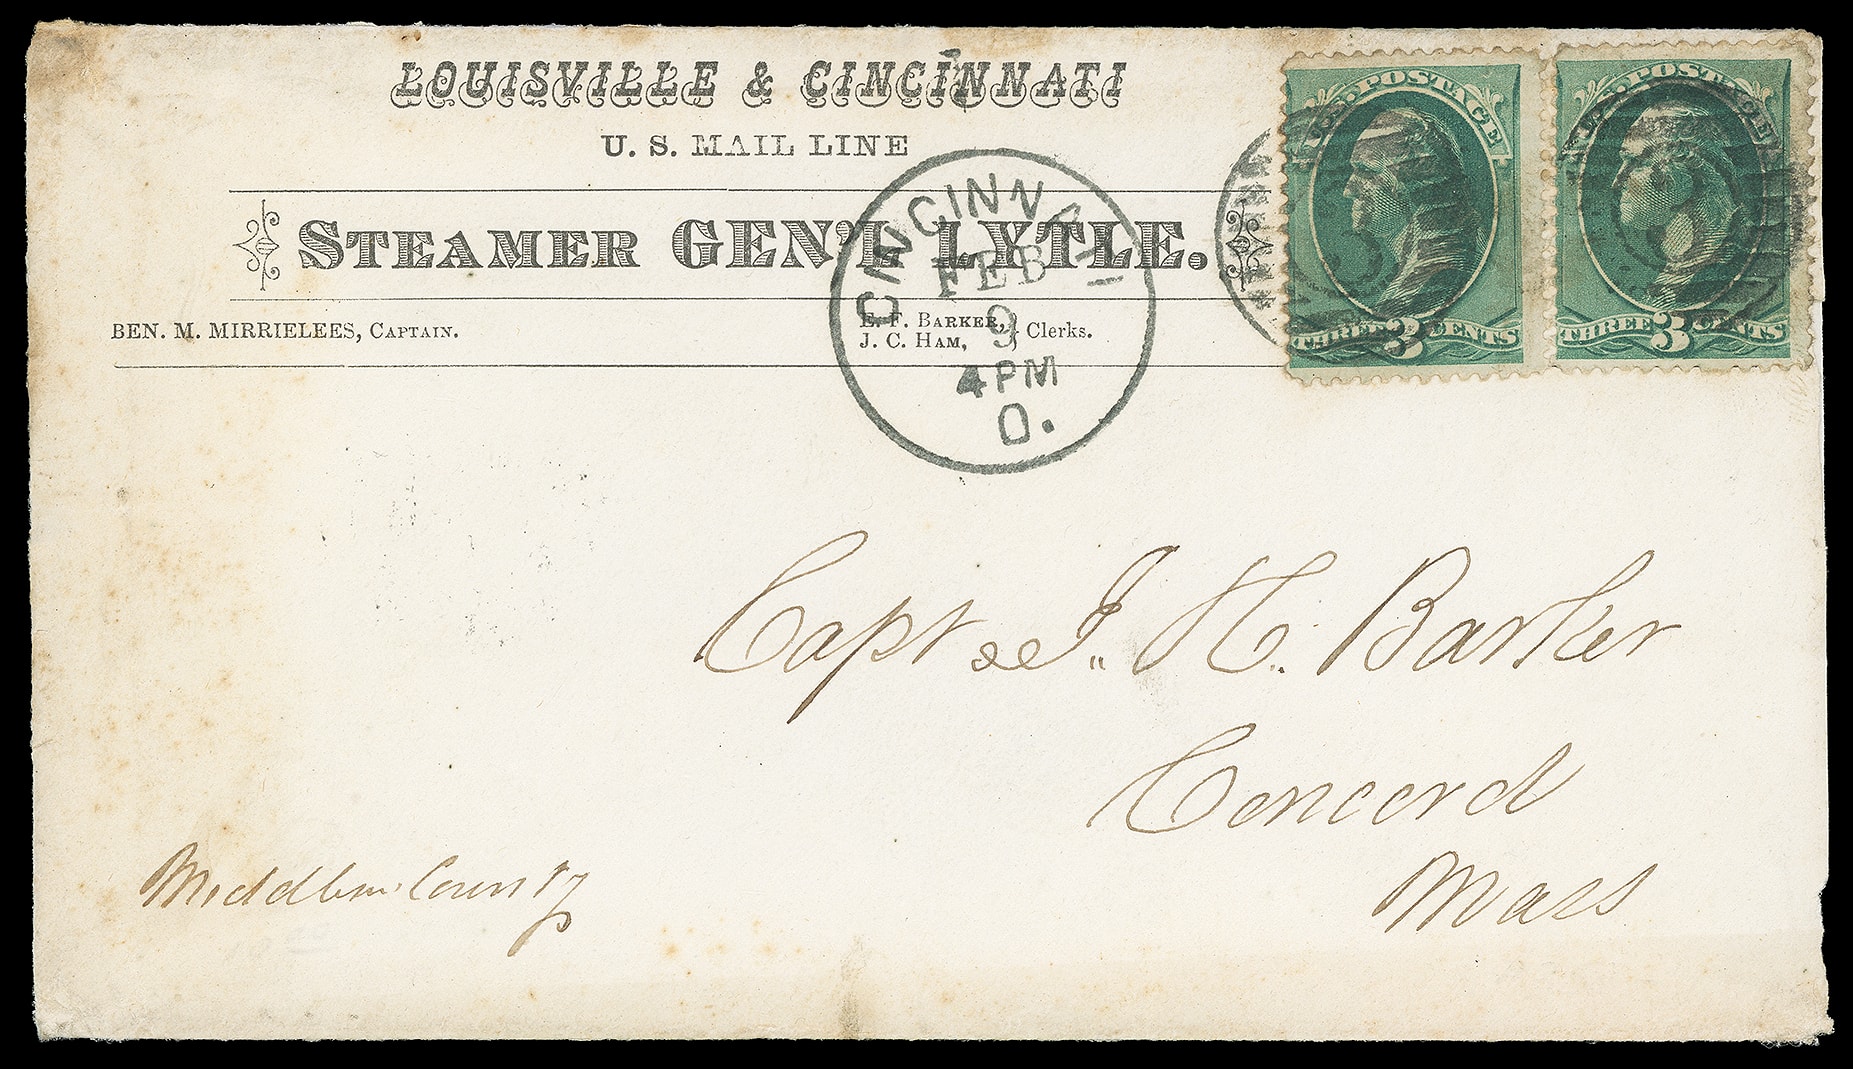 LOUISVILLE & CINCINNATI
U. S. MAIL LINE
STEAMER GEN'L LYTLE.
BEN. M. MIRRIELEES, CAPTAIN.
E. F. BARKER,
J. C. HAM, } Clerks.
CINCINNATI
FEB
9
4 PM
O.
U.S. POSTAGE
THREE 3 CENTS
U.S. POSTAGE
THREE 3 CENTS
3
Capt J. H. Barker
Concord
Mass
Middlesex County